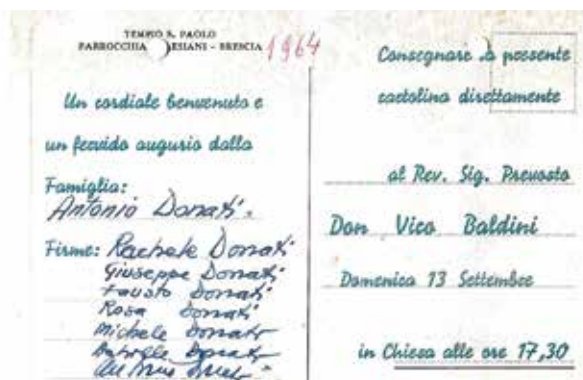 TEMPIO S. PAOLO
PARROCCHIA ESIANI - BRESCIA 1964
Un cordiale benvenuto e
un fervido augurio dalla
Famiglia:
Antonio Donati.
Firme: Rachele Donati
Giuseppe Donati
Fausto Donati
Rosa Donati
Michele Donati
Donati
Consegnare la presente
cartolina direttamente
al Rev. Sig. Prevosto
Don Vico Baldini
Domenica 13 Settembre
in Chiesa alle ore 17,30